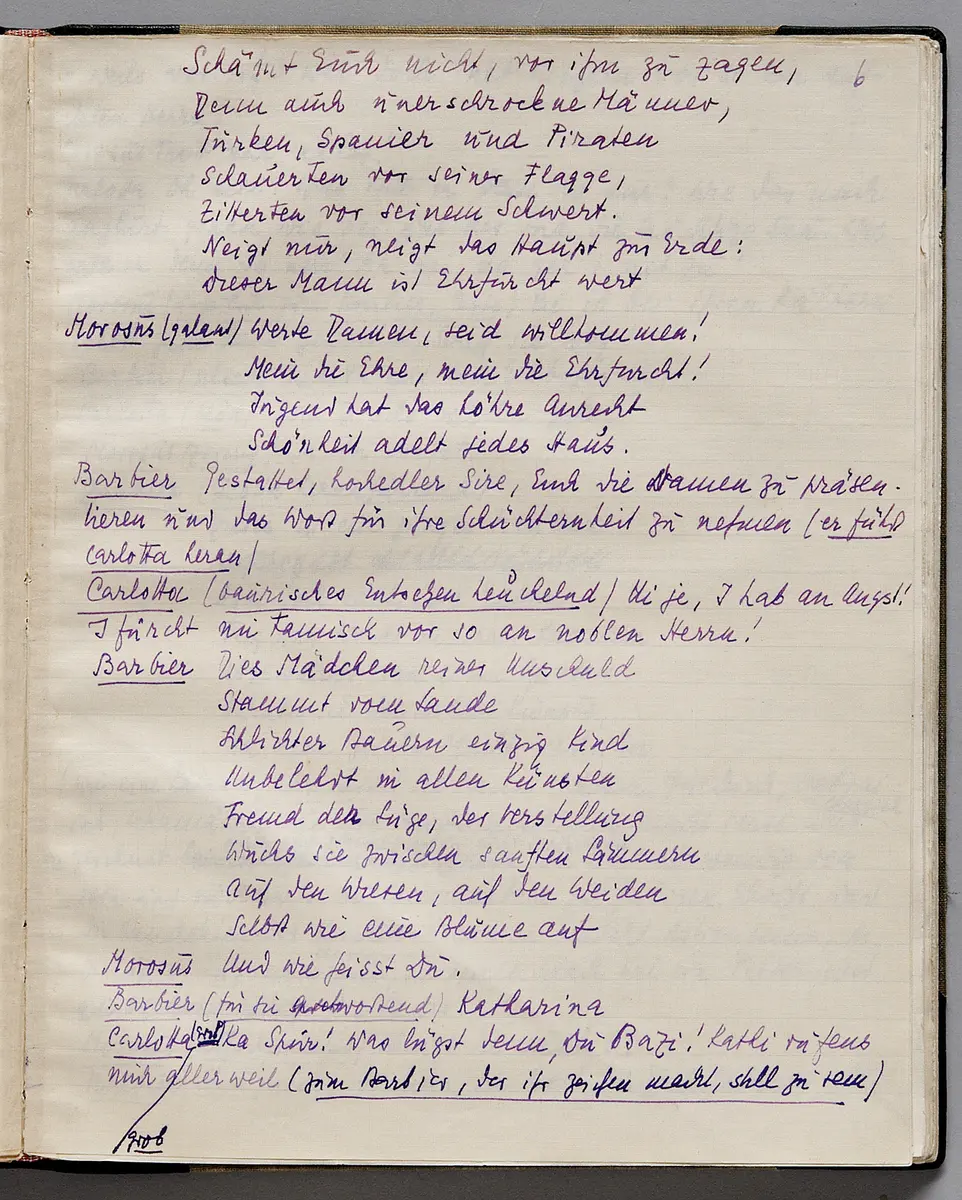 6
Schämt Euch nicht, vor ihm zu zagen,
Denn auch unerschrockne Männer,
Türken, Spanier und Piraten
Schauerten vor seiner Flagge,
Zitterten vor seinem Schwert.
Neigt nur, neigt das Haupt zur Erde:
dieser Mann ist Ehrfurcht wert
Morosus (galant) Werte Damen, seid willkommen!
Mein die Ehre, mein die Ehrfurcht!
Jugend hat das höhre Anrecht
Schönheit adelt jedes Haus.
Barbier Gestattet, hochedler Sire, Euch die Damen zu präsen-
tieren und das Wort für ihre Schüchternheit zu nehmen (er führt
Carlotta heran)
Carlotta (baurisches Entsetzen heuchelnd) Ui je, I hab an Angst!
I fürcht mi damisch vor so an noblen Herrn!
Barbier Dies Mädchen reiner Unschuld
Stammt vom Lande
Schlichter Bauern einzig Kind
Unbelehrt in allen Künsten
Fremd der Lüge, der Verstellung
Wuchs sie zwischen sanften Lämmern
Auf den Wiesen, auf den Weiden
Selbst wie eine Blume auf
Morosus Und wie heisst Du.
Barbier (für sie antwortend) Katharina
Carlotta (grob) Ka Spur! Was lügst denn, Du Bazi! Kathi rufens
mich allerweil (zum Barbier, der ihr zeichen macht, still zu sein)
grob